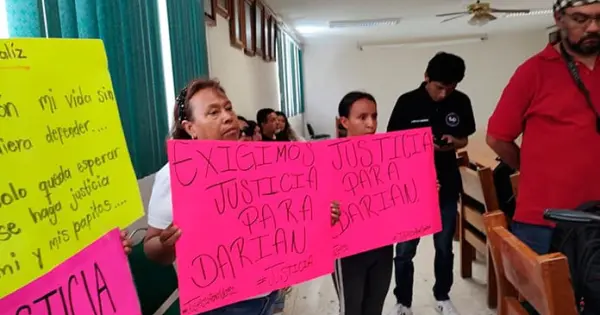 alíz
ón mi vida sin
iera defender....
olo queda esperar
se haga justicia
mi y mis papitos.
USTICIA
EXIGIMOS
JUSTICIA
PARA
DARIAN.
#JUSTICIA
JUSTICIA
PARA
DARIAN.